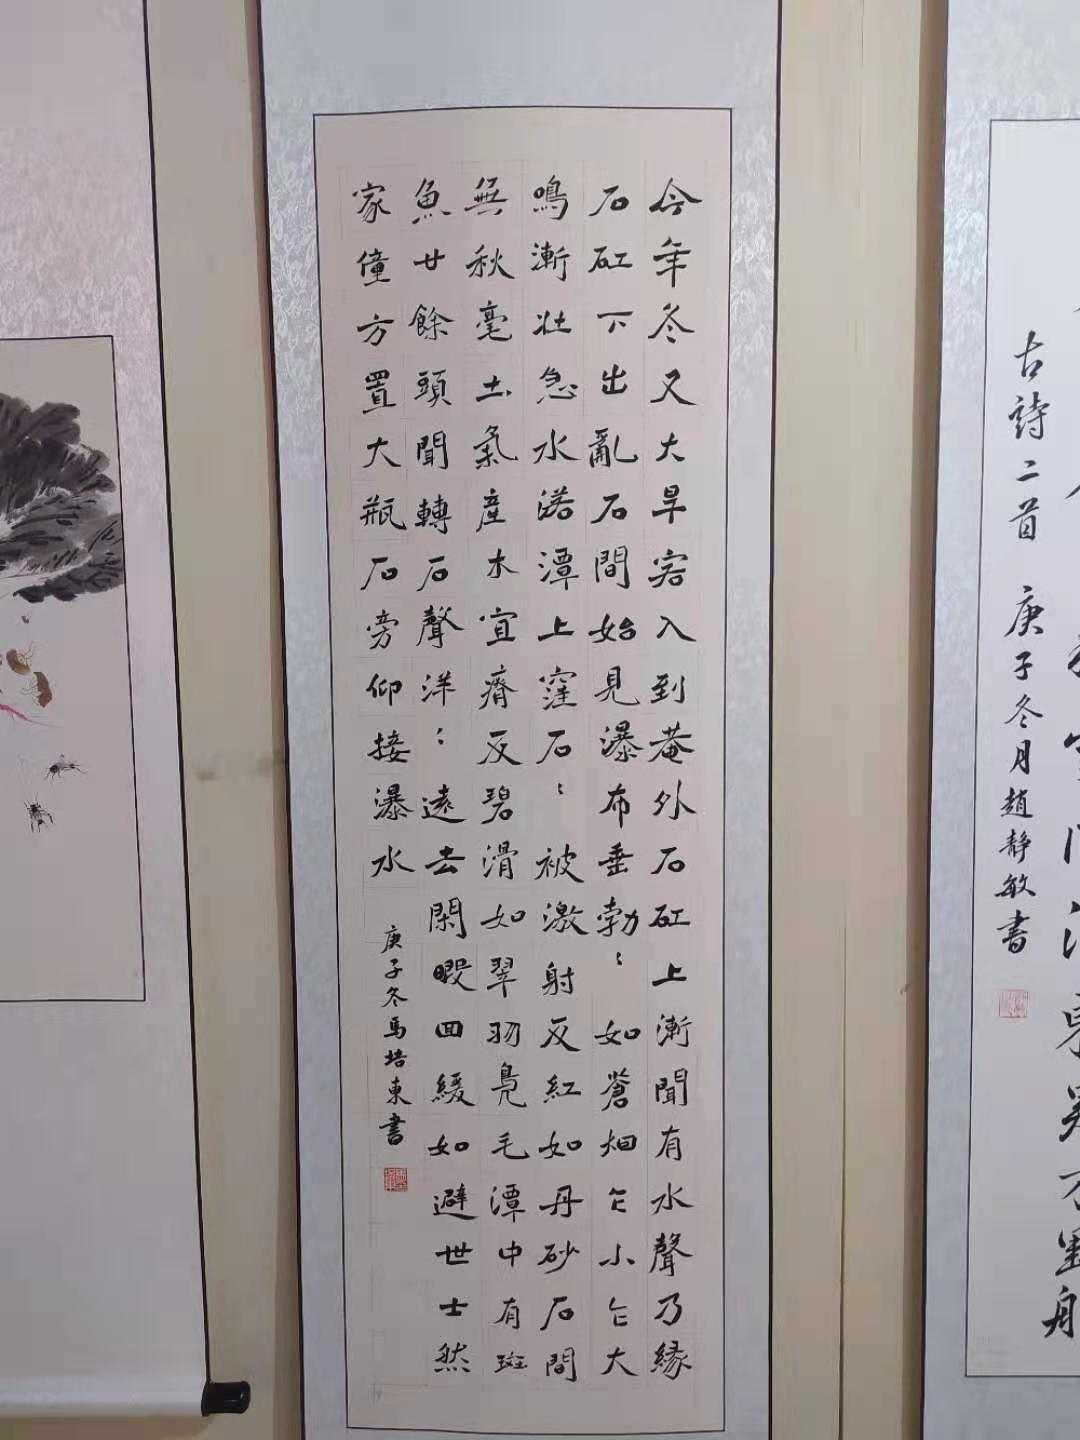 古詩二首 庚子冬月趙靜敏書
今年冬又大旱客入到菴外石矼上漸聞有水聲乃緣
石矼下出亂石間始見瀑布垂勃〻如蒼烟乍小乍大
鳴漸壯急水落潭上窪石〻被激射反紅如丹砂石間
無秋毫土氣產木宜瘠反碧滑如翠羽鳧毛潭中有斑
魚廿餘頭聞轉石聲洋〻遠去閑暇回緩如避世士然
家僮方置大瓶石旁仰接瀑水
庚子冬馬培東書